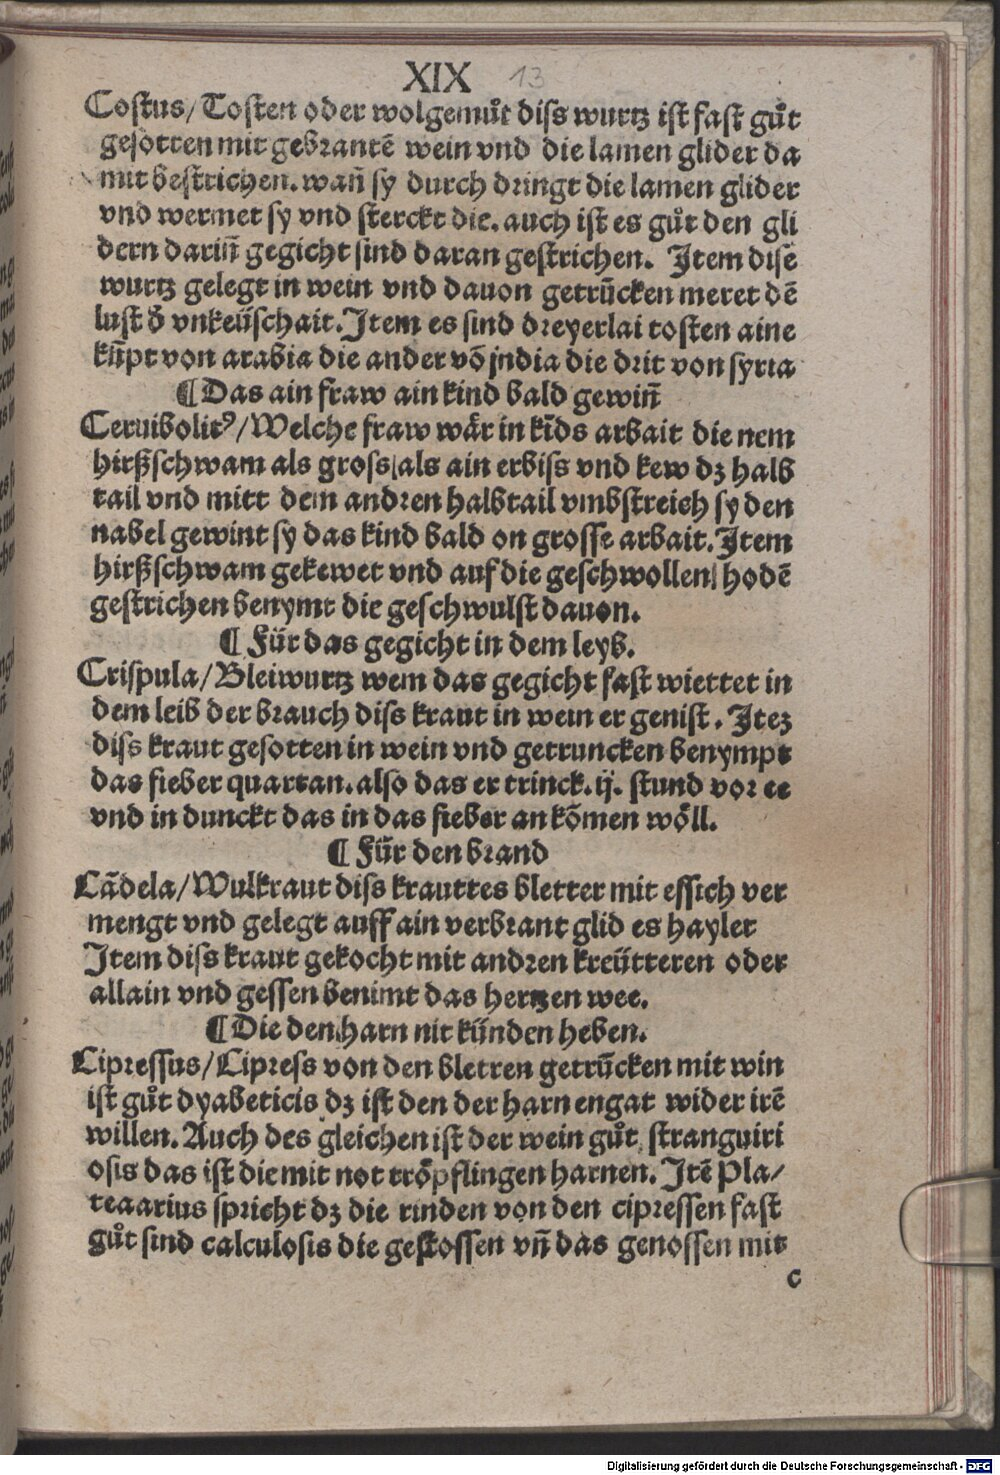 XIX 13
Costus/Tosten oder wolgemůt diss wurtz ist fast gůt
gesotten mit gebrantē wein vnd die lamen glider da
mit bestrichen. wañ sy durch dringt die lamen glider
vnd wermet sy vnd sterckt die. auch ist es gůt den gli
dern dariñ gegicht sind daran gestrichen. Item disē
wurtz gelegt in wein vnd dauon getrūcken meret dē
lust d̄ vnkeüschait. Item es sind dreyerlai tosten aine
kūpt von arabia die ander vō jndia die drit von syria
¶ Das ain fraw ain kind bald gewiñ
Ceruibolitꝰ/Welche fraw wär in kīds arbait die nem
hirßschwam als gross als ain erbiss vnd kew dz halb
tail vnd mitt dem andren halbtail vmbstreich sy den
nabel gewint sy das kind bald on grosse arbait. Item
hirßschwam gekewet vnd auf die geschwollen hodē
gestrichen benymt die geschwulst dauon.
¶ Für das gegicht in dem leyb.
Crispula/Bleiwurtz wem das gegicht fast wiettet in
dem leib der brauch diss kraut in wein er genist. Itez
diss kraut gesotten in wein vnd getruncken benympt
das fieber quartan. also das er trinck. ij. stund vor ee
vnd in dunckt das in das fieber an kōmen wöll.
¶ Für den brand
Cādela/Wulkraut diss krauttes bletter mit essich ver
mengt vnd gelegt auff ain verbrant glid es haylet
Item diss kraut gekocht mit andren kreütteren oder
allain vnd gessen benimt das hertzen wee.
¶ Die den harn nit künden heben.
Cipressus/Cipress von den bletren getrūcken mit win
ist gůt dyabeticis dz ist den der harn engat wider irē
willen. Auch des gleichen ist der wein gůt stranguiri
osis das ist die mit not tröpflingen harnen. Itē Pla/
teaarius spricht dz die rinden von den cipressen fast
gůt sind calculosis die gestossen vñ das genossen mit
c
Digitalisierung gefördert durch die Deutsche Forschungsgemeinschaft - DFG